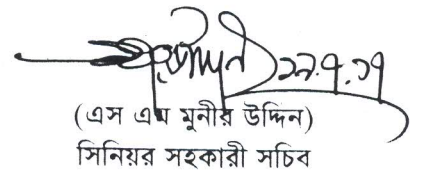 ১৯.৭.১৭
(এস এম মুনীর উদ্দিন)
সিনিয়র সহকারী সচিব